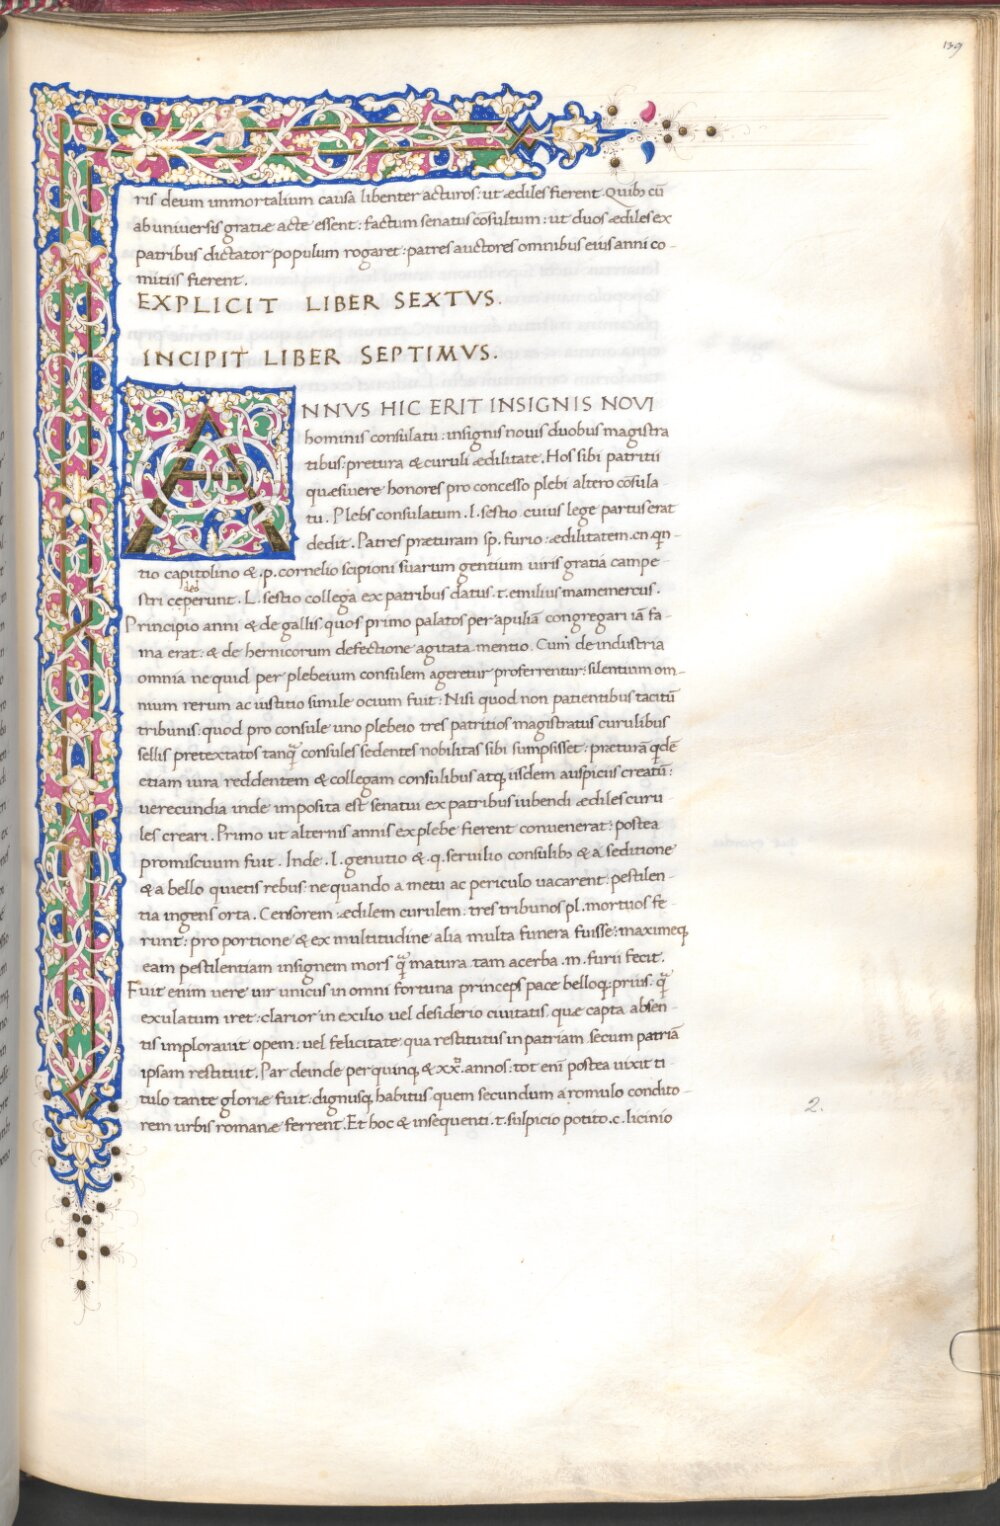 139
ris deum immortalium causa libenter acturos: ut ædiles fierent. Quibꝫ cū
ab universis gratiæ acte essent: factum senatus cōsultum: ut duos ædiles ex
patribus dictator populum rogaret: patres auctores omnibus eius anni co-
mitiis fierent.
EXPLICIT LIBER SEXTVS.
INCIPIT LIBER SEPTIMVS.
ANNVS HIC ERIT INSIGNIS NOVI
hominis consulatu: insignis novis duobus magistra
tibus: pretura & curuli ædilitate. Hos sibi patritii
quæsivere honores pro concesso plebi altero cōsula-
tu. Plebs consulatum .l. sestio cuius lege partus erat
dedit. Patres præturam sp. furio: ædilitatem .cn. qn-
tio capitolino & .p. cornelio scipioni suarum gentium viris gratia campe-
stri ceperunt. L. sestio collega ex patribus datus .t. emilius mamemercus.
Principio anni & de gallis quos primo palatos per apuliā congregari iā fa-
ma erat: & de hernicorum defectione agitata mentio. Cum de industria
omnia ne quid per plebeium consulem ageretur proferrentur: silentium om-
nium rerum ac iustitio simile ocium fuit: Nisi quod non patientibus tacitū
tribunis: quod pro consule uno plebeio tres patritios magistratus curulibus
sellis pretextatos tanq̄ consules sedentes nobilitas sibi sumpsisset: præturā qdē
etiam iura reddentem & collegam consulibus atq; iisdem auspiciis creatū:
verecundia inde imposita est senatui ex patribus iubendi ædiles curu-
les creari. Primo ut alternis annis ex plebe fierent convenerat: postea
promiscuum fuit. Inde .l. genutio & .q. servilio consulibꝫ & a seditione
& a bello quietis rebus: ne quando a metu ac periculo vacarent: pestilen-
tia ingens orta. Censorem ædilem curulem: tres tribunos pl. mortuos fe-
runt: pro portione & ex multitudine alia multa funera fuisse: maximeq;
eam pestilentiam insignem mors q̄ matura tam acerba .m. furii fecit.
Fuit enim vere vir unicus in omni fortuna princeps pace belloq; prius: q̄
exulatum iret: clarior in exilio vel desiderio civitatis, quæ capta absen-
tis imploravit opem: vel felicitate qua restitutus in patriam secum patriā
ipsam restituit. Par deinde per quinq; & xx. annos: tot enī postea vixit ti-
tulo tante gloriæ fuit: dignusq; habitus quem secundum a romulo condito-
rem urbis romanæ ferrent. Et hoc & insequenti .t. sulpicio potito .c. licinio
2.